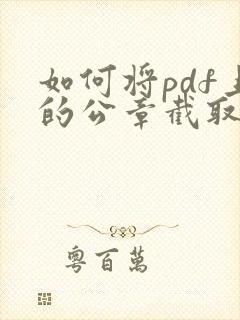 如何将pdf上
的公章截取
粤百萬